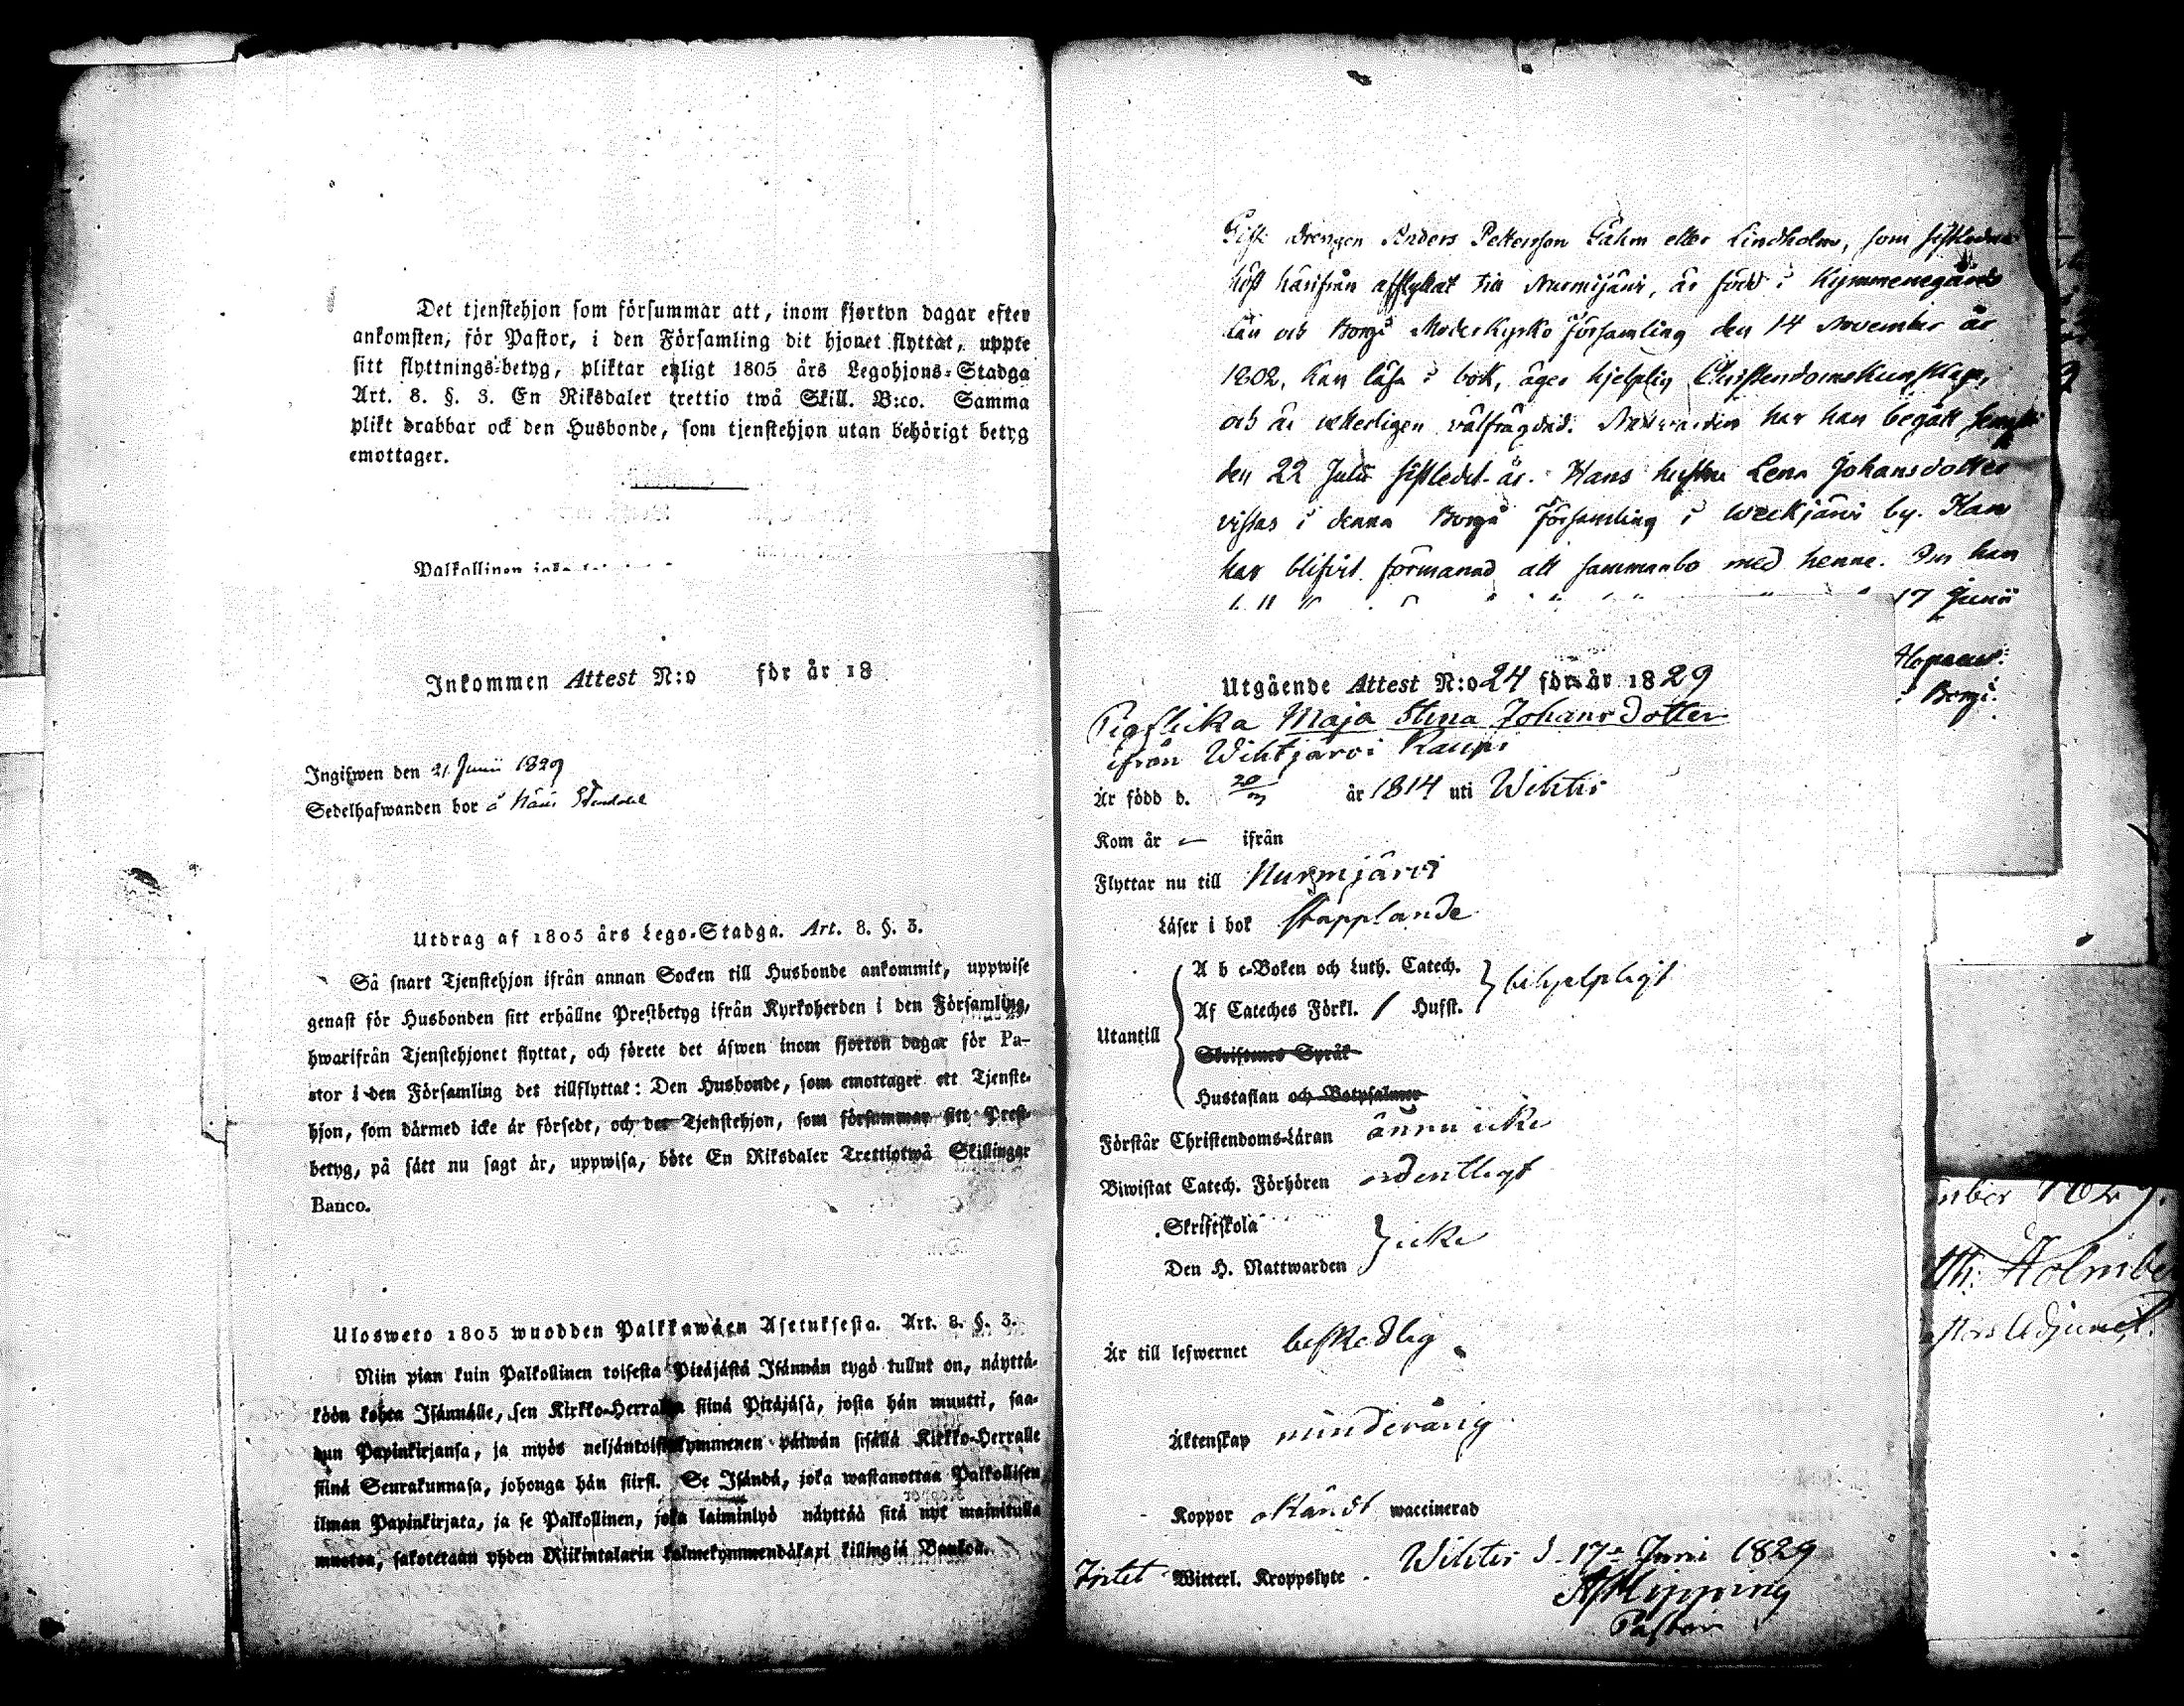 Det tjenstehjon som försummar att, inom fjorton dagar efter
ankomsten, för Pastor, i den Församling dit hjonet flyttat, uppte
sitt flyttnings-betyg, pliktar enligt 1805 års Legohjons-Stadga
Art. 8. §. 3. En Riksdaler trettio twå Skill. B:co. Samma
plikt drabbar ock den Husbonde, som tjenstehjon utan behörigt betyg
emottager.
Palkollinen joka
Inkommen Attest N:o för år 18
Ingifwen den 21 Junii 1829
Sedelhafwanden bor å
Utdrag af 1805 års Lego-Stadga. Art. 8. §. 3.
Så snart Tjenstehjon ifrån annan Socken till Husbonde ankommit, uppwise
genast för Husbonden sitt erhållne Prestbetyg ifrån Kyrkoherden i den Församling,
hwarifrån Tjenstehjonet flyttat, och förete det äfwen inom fjorton dagar för Pa-
stor i den Församling det tillflyttat: Den Husbonde, som emottager ett Tjenste-
hjon, som därmed icke är försedt, och det Tjenstehjon, som försummar sitt Prest-
betyg, på sätt nu sagt är, uppwisa, böte En Riksdaler Trettiotwå Skillingar
Banco.
Ulosweto 1805 wuodden Palkkawäen Asetuksesta. Art. 8. §. 3.
Niin pian kuin Palkollinen toisesta Pitäjästä Isännän tygö tullut on, näyttä-
köön kohta Isännälle, sen Kirkko-Herralta siinä Pitäjäsä, josta hän muutti, saa-
dun Papinkirjansa, ja myös neljäntoistakymmenen päiwän sisällä Kirkko-Herralle
siinä Seurakunnasa, johonga hän siirsi. Se Isändä, joka wastanottaa Palkollisen
ilman Papinkirjata, ja se Palkollinen, joka laiminlyö näyttää sitä nyt mainitulla
muotoa, sakotetaan yhden Riikintalarin kolmekymmendäkaxi killingiä Bankoa.
Gift drengen Anders Pettersson Galm eller Lindholm, som sistledne
höst härifrån afflyttat till Nurmijärvi, är född i Kymmenegårds
Län och Borgå Moderkyrko Församling den 14 November år
1802, kan läsa i bok, äger hjelplig Christendomskunskap,
och är wetterligen välfrägdad. Nattvarden har han begått
den 22 Julii sistledet år. Hans hustru Lena Johansdotter
vistas i denna Borgå Församling i Weckjärvi by. Han
har blifvit förmanad att sammanbo med henne. Om han
17 Junii
i Borgå.
Utgående Attest N:o 24 för år 1829
Pigflicka Maja Stina Johansdotter
ifrån Wihtjärvi Kaupi
Är född d. 20/3 år 1814 uti Wihtis
Kom år — ifrån
Flyttar nu till Nurmjärvi
Läser i bok stapplande
A b c-Boken och Luth. Catech.
Af Cateches Förkl. / Husst. } behjelpligt
Utantill
Skriftenes Språk
Hustaflan och Botpsalmer
Förstår Christendoms-Läran ännu icke
Biwistat Catech. Förhören ordentligt
Skriftskola
Den H. Nattwarden } icke
Är till lefwernet beskedlig
Äktenskap minderårig
Koppor okändt waccinerad
Intet Witterl. Kroppslyte.
Wihtis d. 17de Junii 1829
Hipping
Pastor
Holmbe
Adjunct.